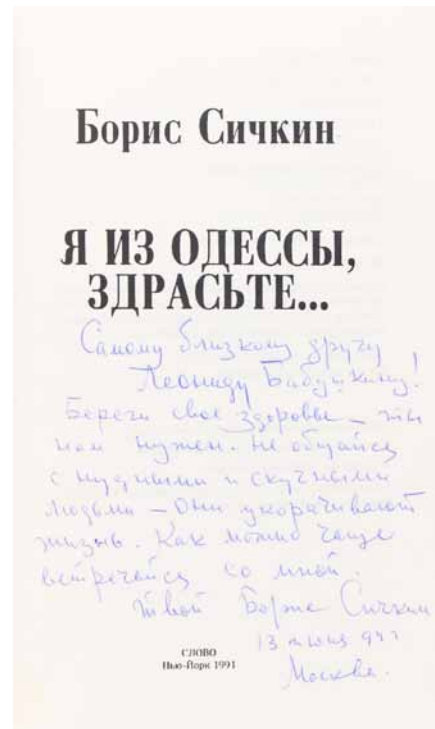 Борис Сичкин
Я ИЗ ОДЕССЫ,
ЗДРАСЬТЕ...
Самому близкому другу
Леониду Бабушкину!
Береги свое здоровье – ты
нам нужен. Не общайся
с нудными и скучными
людьми – они укорачивают
жизнь. Как можно чаще
встречайся со мной.
Твой Боря Сичкин
13 июня 94 г
Москва.
СЛОВО
Нью-Йорк 1991